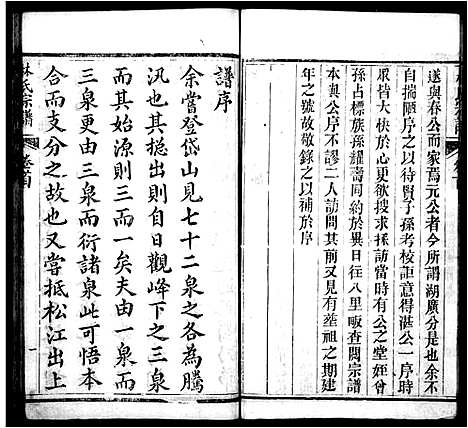 遂與春公而家焉元公者今所謂湖廣分是也余不
自揣陋序之以待賢子孫考校詎意得湛公一序時
眾皆大快於心更欲搜求採訪當時有公之堂姪曾
孫占標族孫耀壽同約於異日往八里畈查閱宗譜
本與公序不謬二人訪問其前又見有塟祖之期建
年之號故敬錄之以補於序
譜序
余嘗登岱山見七十二泉之各為騰
汎也其搃出則自日觀峰下之三泉
而其始源則三而一矣夫由一泉而
三泉更由三泉而衍諸泉此可悟本
合而支分之故也又嘗抵松江出上
林氏宗譜
卷首
一